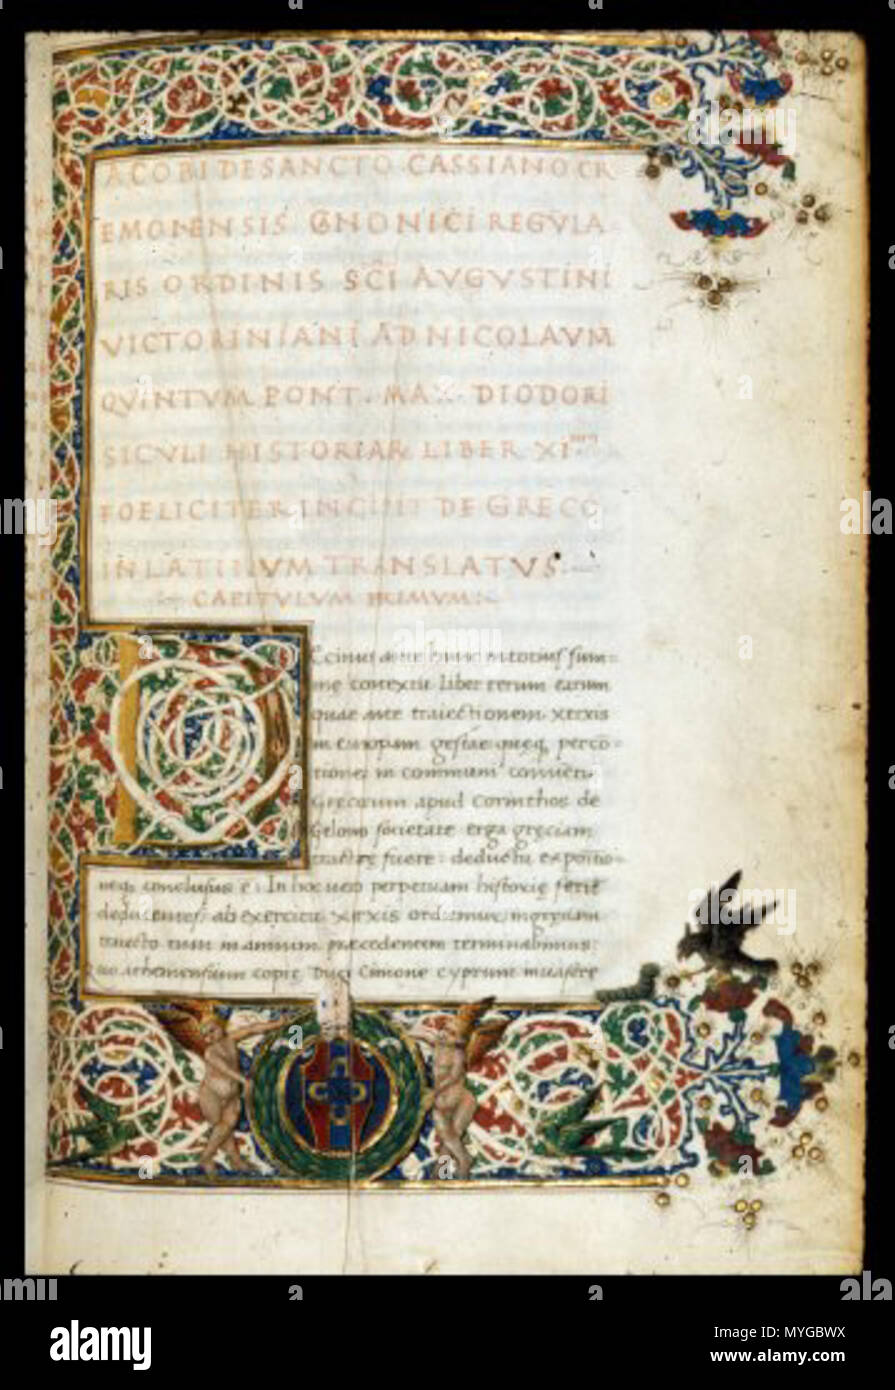 IACOBI DE SANCTO CASSIANO CR
EMONENSIS CANONICI REGVLA
RIS ORDINIS SCI AVGVSTINI
VICTORINIANI AD NICOLAVM
QVINTVM PONT. MAX. DIODORI
SICVLI HISTORIAR LIBER XI
FOELICITER INCIPIT DE GRECO
IN LATINVM TRANSLATVS:
CAPITVLVM PRIMVM:
Ecimus ante hunc totius
liber rerum earum
quae ante traiectionem xerxis
in europam gestae perco
tiones in communi
Grecorum apud Corinthos de
Gelonis societate erga greciam
fuere: deductu expositio
conclusus e: In hoc vero perpetuam historie serie
ab exercitu xerxis
tum in annum precedentem terminabimus:
quo athenensium copie Duci Cimone cyprum invasere
alamy
Image ID: MYGBWX
www.alamy.com